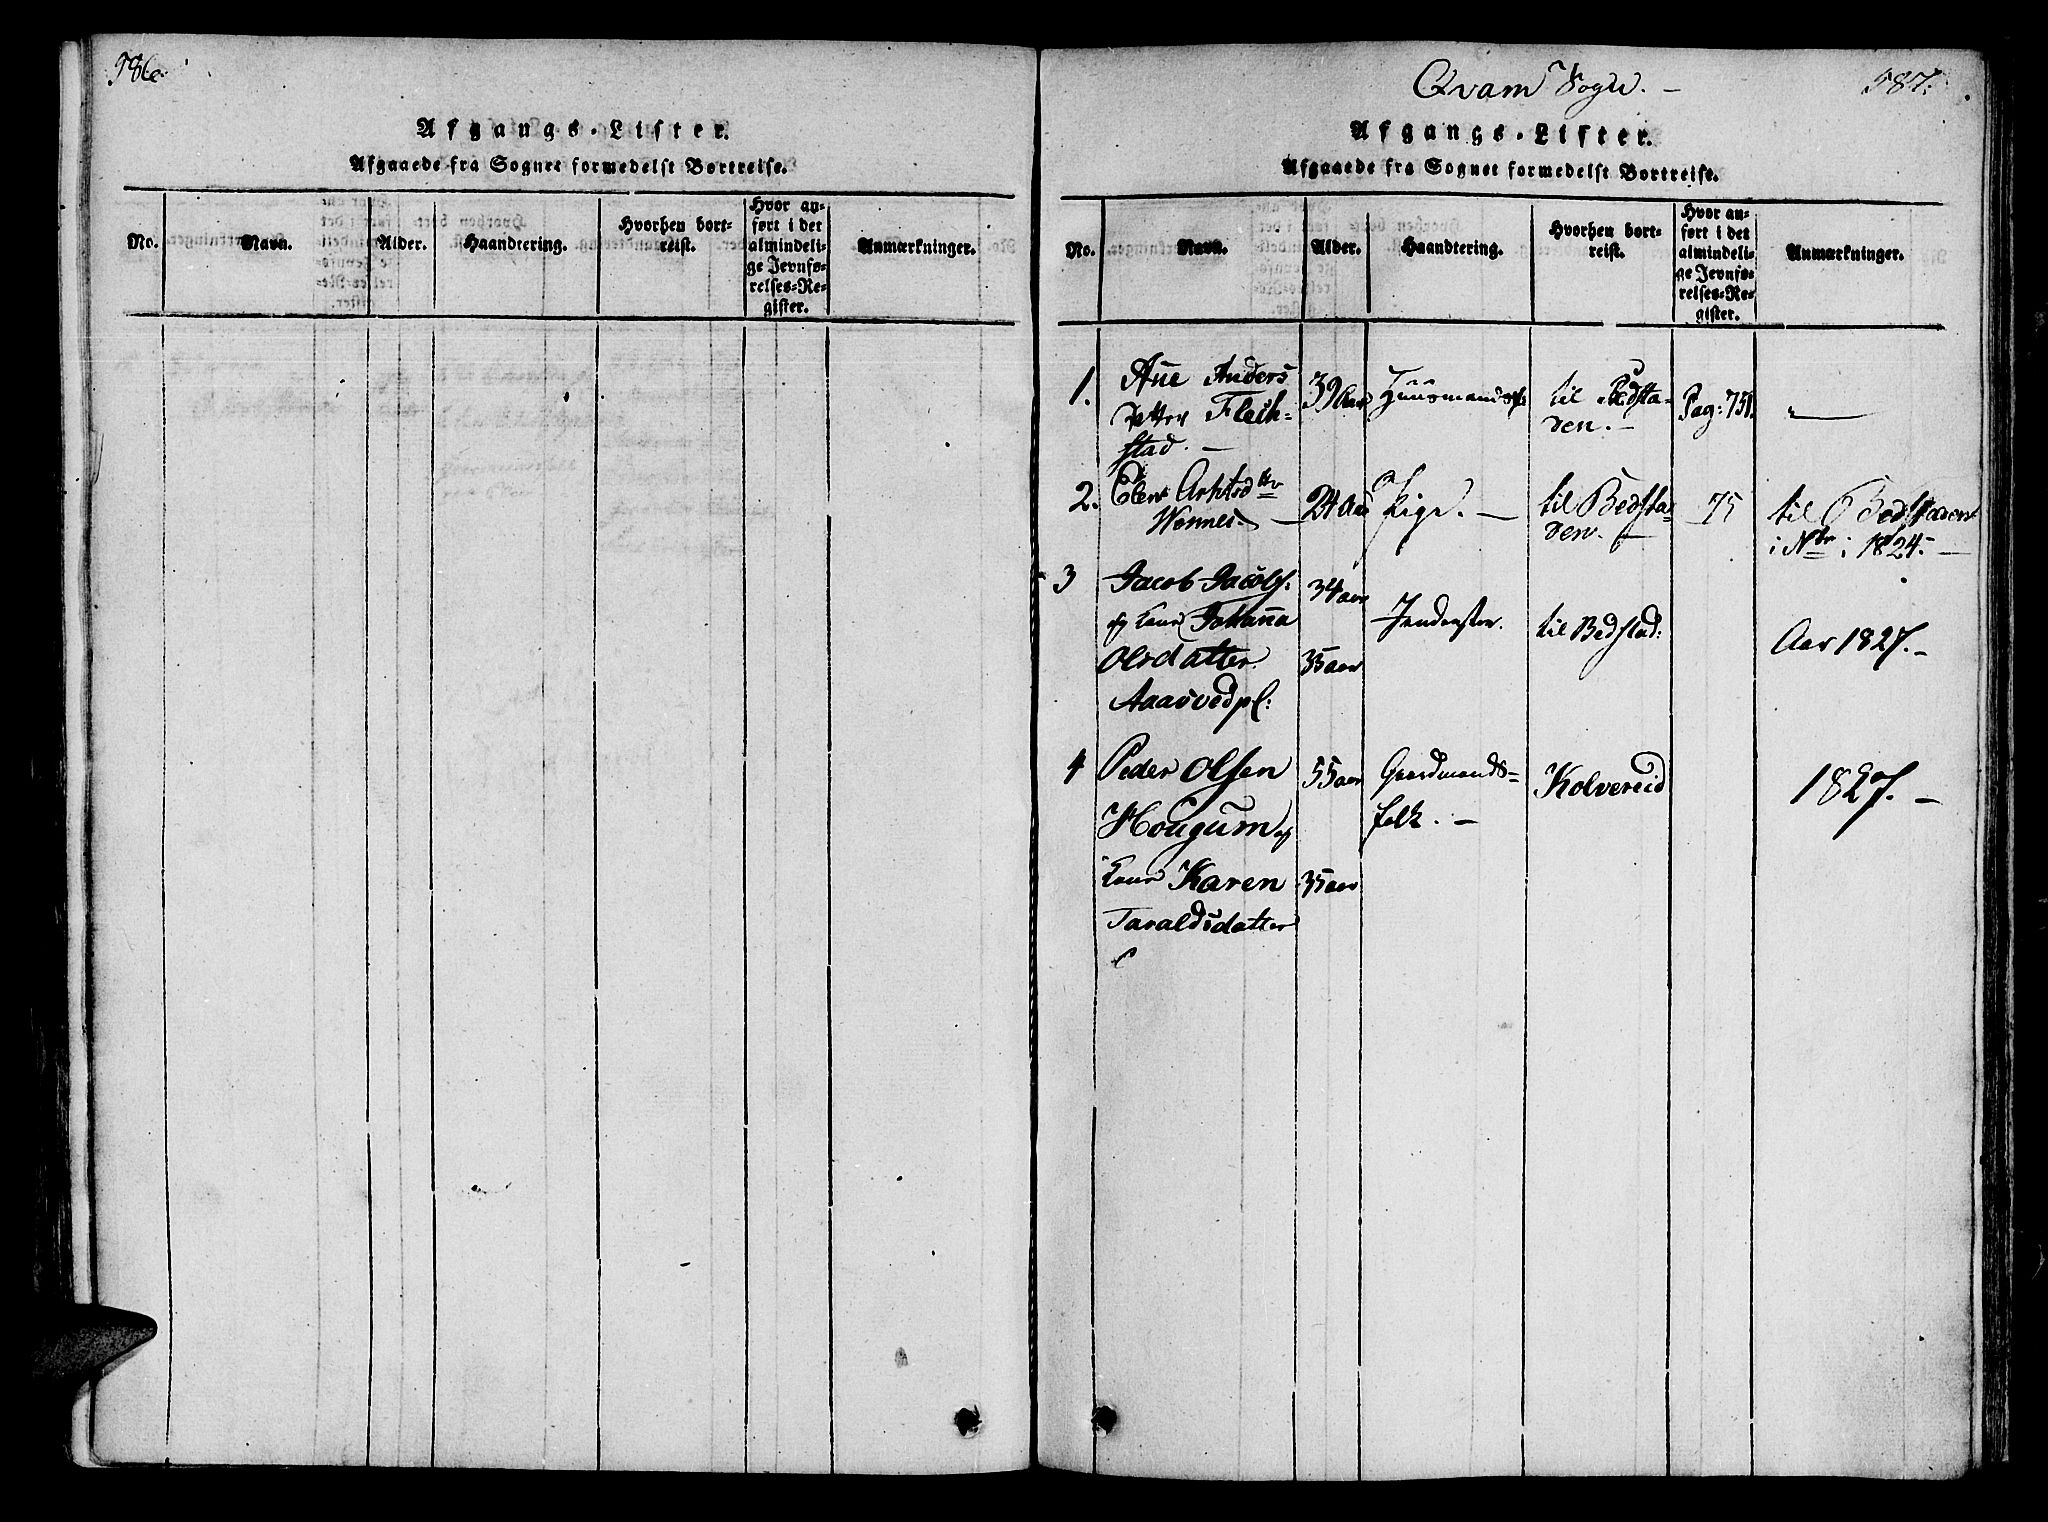 586.
Afgangs-Lister.
Afgaaede fra Sognet formedelst Bortreise.
No.
Navn.
Alder.
Haandtering.
Hvorhen bort-
reist.
Hvor an-
ført i det
almindeli-
ge Jevnfø-
relses-Re-
gister.
Anmærkninger.
Qvam Sogn. -
587.
Afgangs-Lister.
Afgaaede fra Sognet formedelst Bortreise.
No.
Navn.
Alder.
Haandtering.
Hvorhen bort-
reist.
Hvor an-
ført i det
almindeli-
ge Jevnfø-
relses-Re-
gister.
Anmærkninger.
1.
Ane Anders
datter Fleck-
stad. -
39 Aar
til Bedsta-
den. -
Pag: 751.
2.
Elen
24 Aar
Pige. -
til Bedsta-
den. -
75
til Bedstaden
i Nbr i 1824. -
3
Jacob Jacobs:
og Kone Johanna
Olsdatter
Aaasvedpl:
34 aar
35 aar
Inderster.
til Bedstad:
Aar 1827. -
4
Peder Olsen
Hougum og
Kone Karen
Taraldsdatter
55 aar
35 aar
Gaardmands-
folk. -
Kolvereid
1827. -